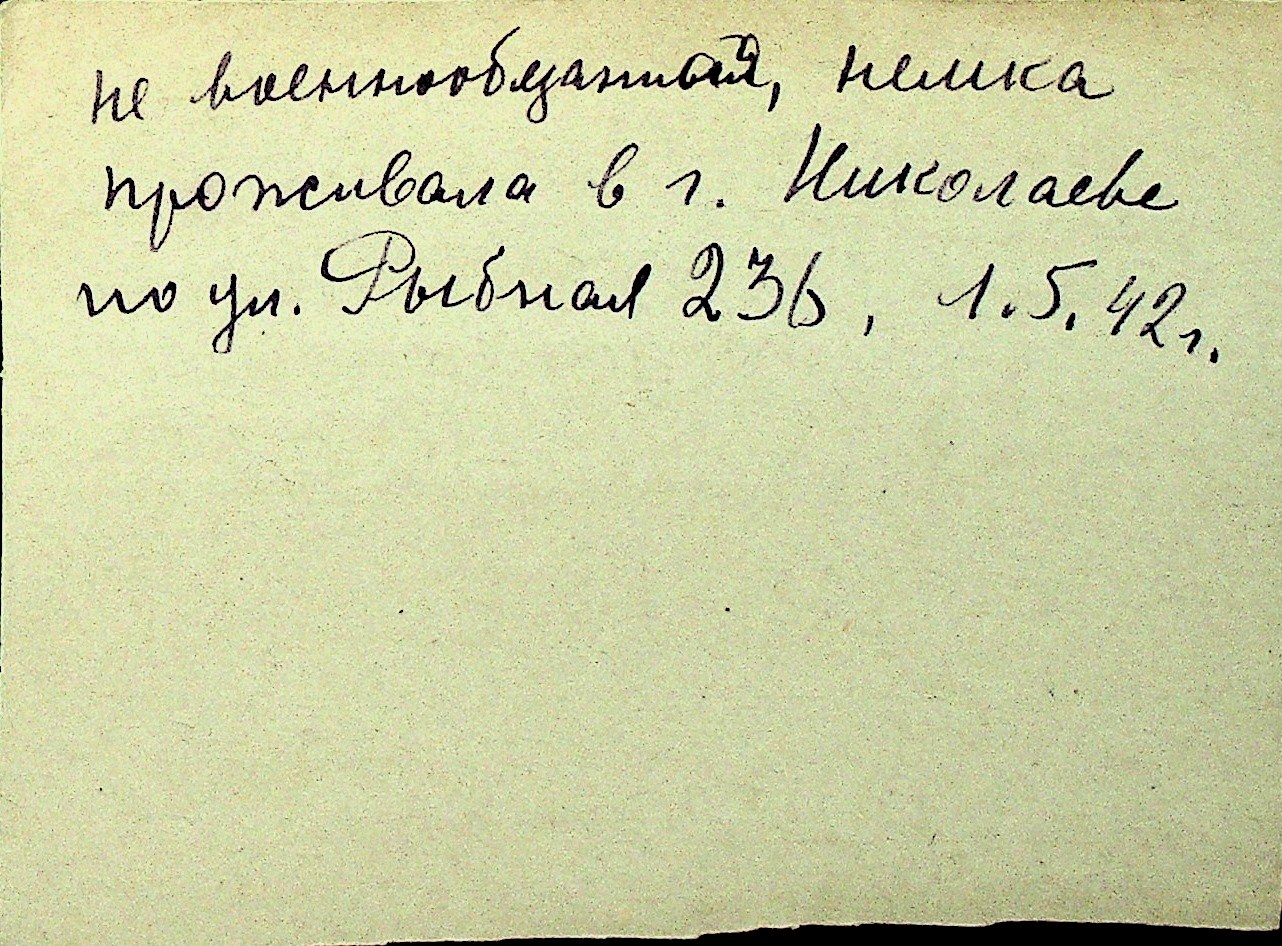 не военнообязанная, немка
проживала в г. Николаеве
по ул. Рыбная 236, 1.5.42г.